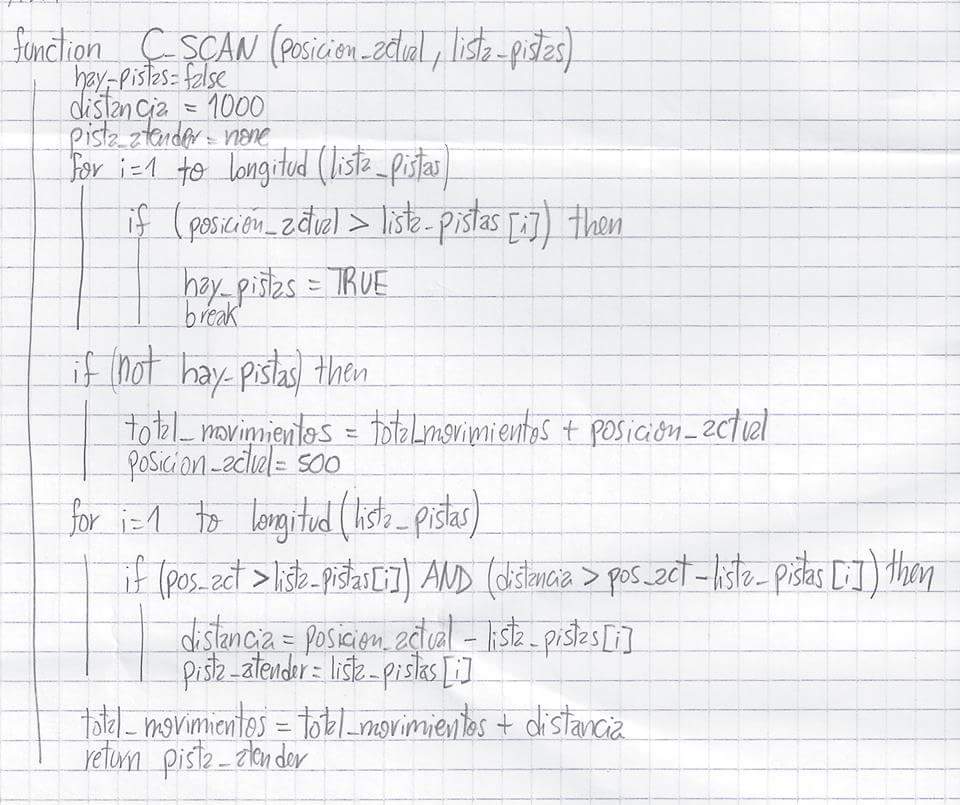 function C_SCAN (posicion_actual, lista_pistas)
hay_pistas = false
distancia = 1000
pista_atender = none
for i=1 to longitud (lista_pistas)
if (posición_actual > lista_pistas [i]) then
hay_pistas = TRUE
break
if (not hay_pistas) then
total_movimientos = total_movimientos + posicion_actual
posicion_actual = 500
for i=1 to longitud (lista_pistas)
if (pos_act > lista_pistas[i]) AND (distancia > pos_act - lista_pistas [i]) then
distancia = posicion_actual - lista_pistas [i]
pista_atender = lista_pistas [i]
total_movimientos = total_movimientos + distancia
return pista_atender